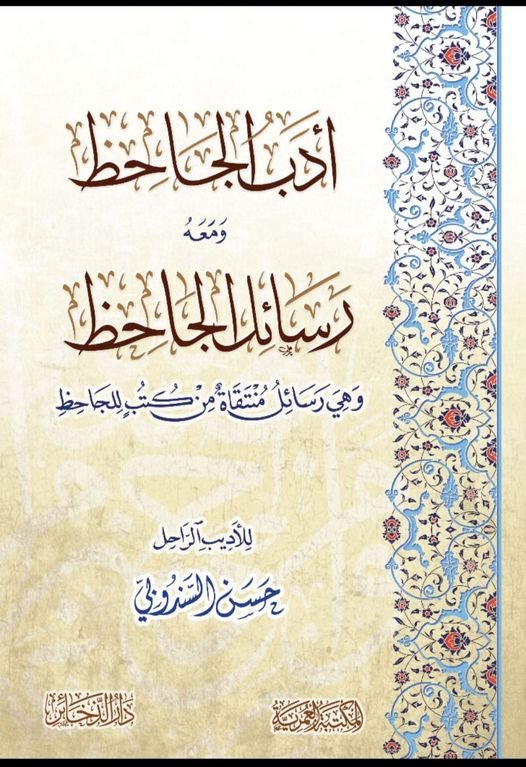 أدَبُ الجَاحِظ
وَمَعَهُ
رَسَائِل الجَاحِظ
وَهِيَ رَسَائِلُ مُنْتَقَاةٌ مِنْ كُتُبٍ لِلجَاحِظِ
لِلأَدِيبِ الرَّاحِل
حَسَن السَّنْدُوبِيّ
المكتَبَة العُمَرِيَّة
دَارُ الذَّخَائِر